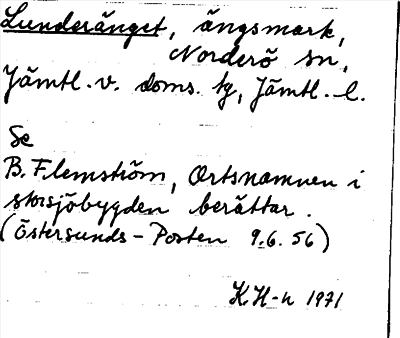 Lunderänget, ängsmark,
Norderö sn,
Jämtl. v. doms. tg, Jämtl. l.
Se
B. Flemström, Ortsnamnen i
storsjöbygden berättar.
(Östersunds-Posten 9.6.56)
K.H-n 1971